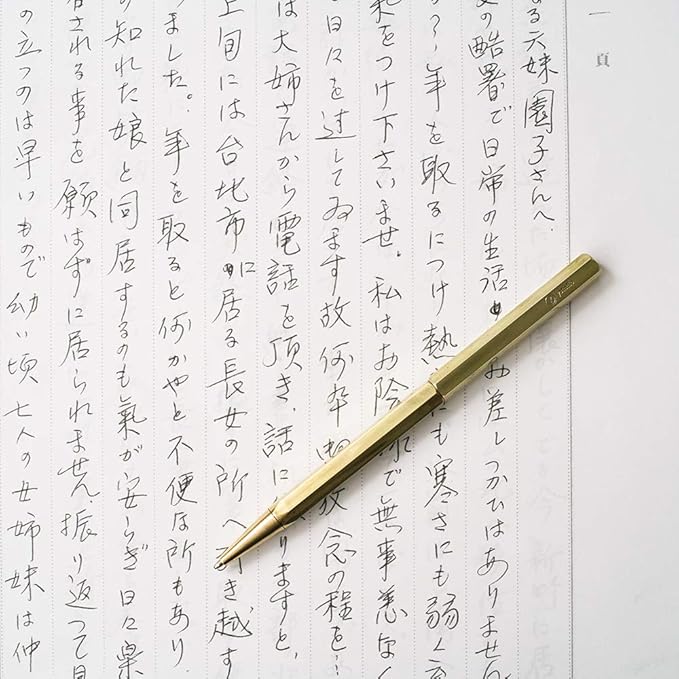 一頁
る六妹園子さんへ.
の酷暑で日常の生活 お差しつかひはありません
年を取るにつけ熱 にも寒さにも弱く
をつけ下さいませ。私はお陰 で無事恙なく
日々を過してゐます故何卒 放念の程を…
は大姉さんから電話を頂き、話に りますと、
上旬には台北市に居る長女の所へ引き越す
ました。年を取ると何かやと不便な所もあり
の知れた娘と同居するのも氣が安らぎ日々
される事を願はずに居られません。振り返つて
の立つのは早いもので幼い頃七人の女姉妹は仲